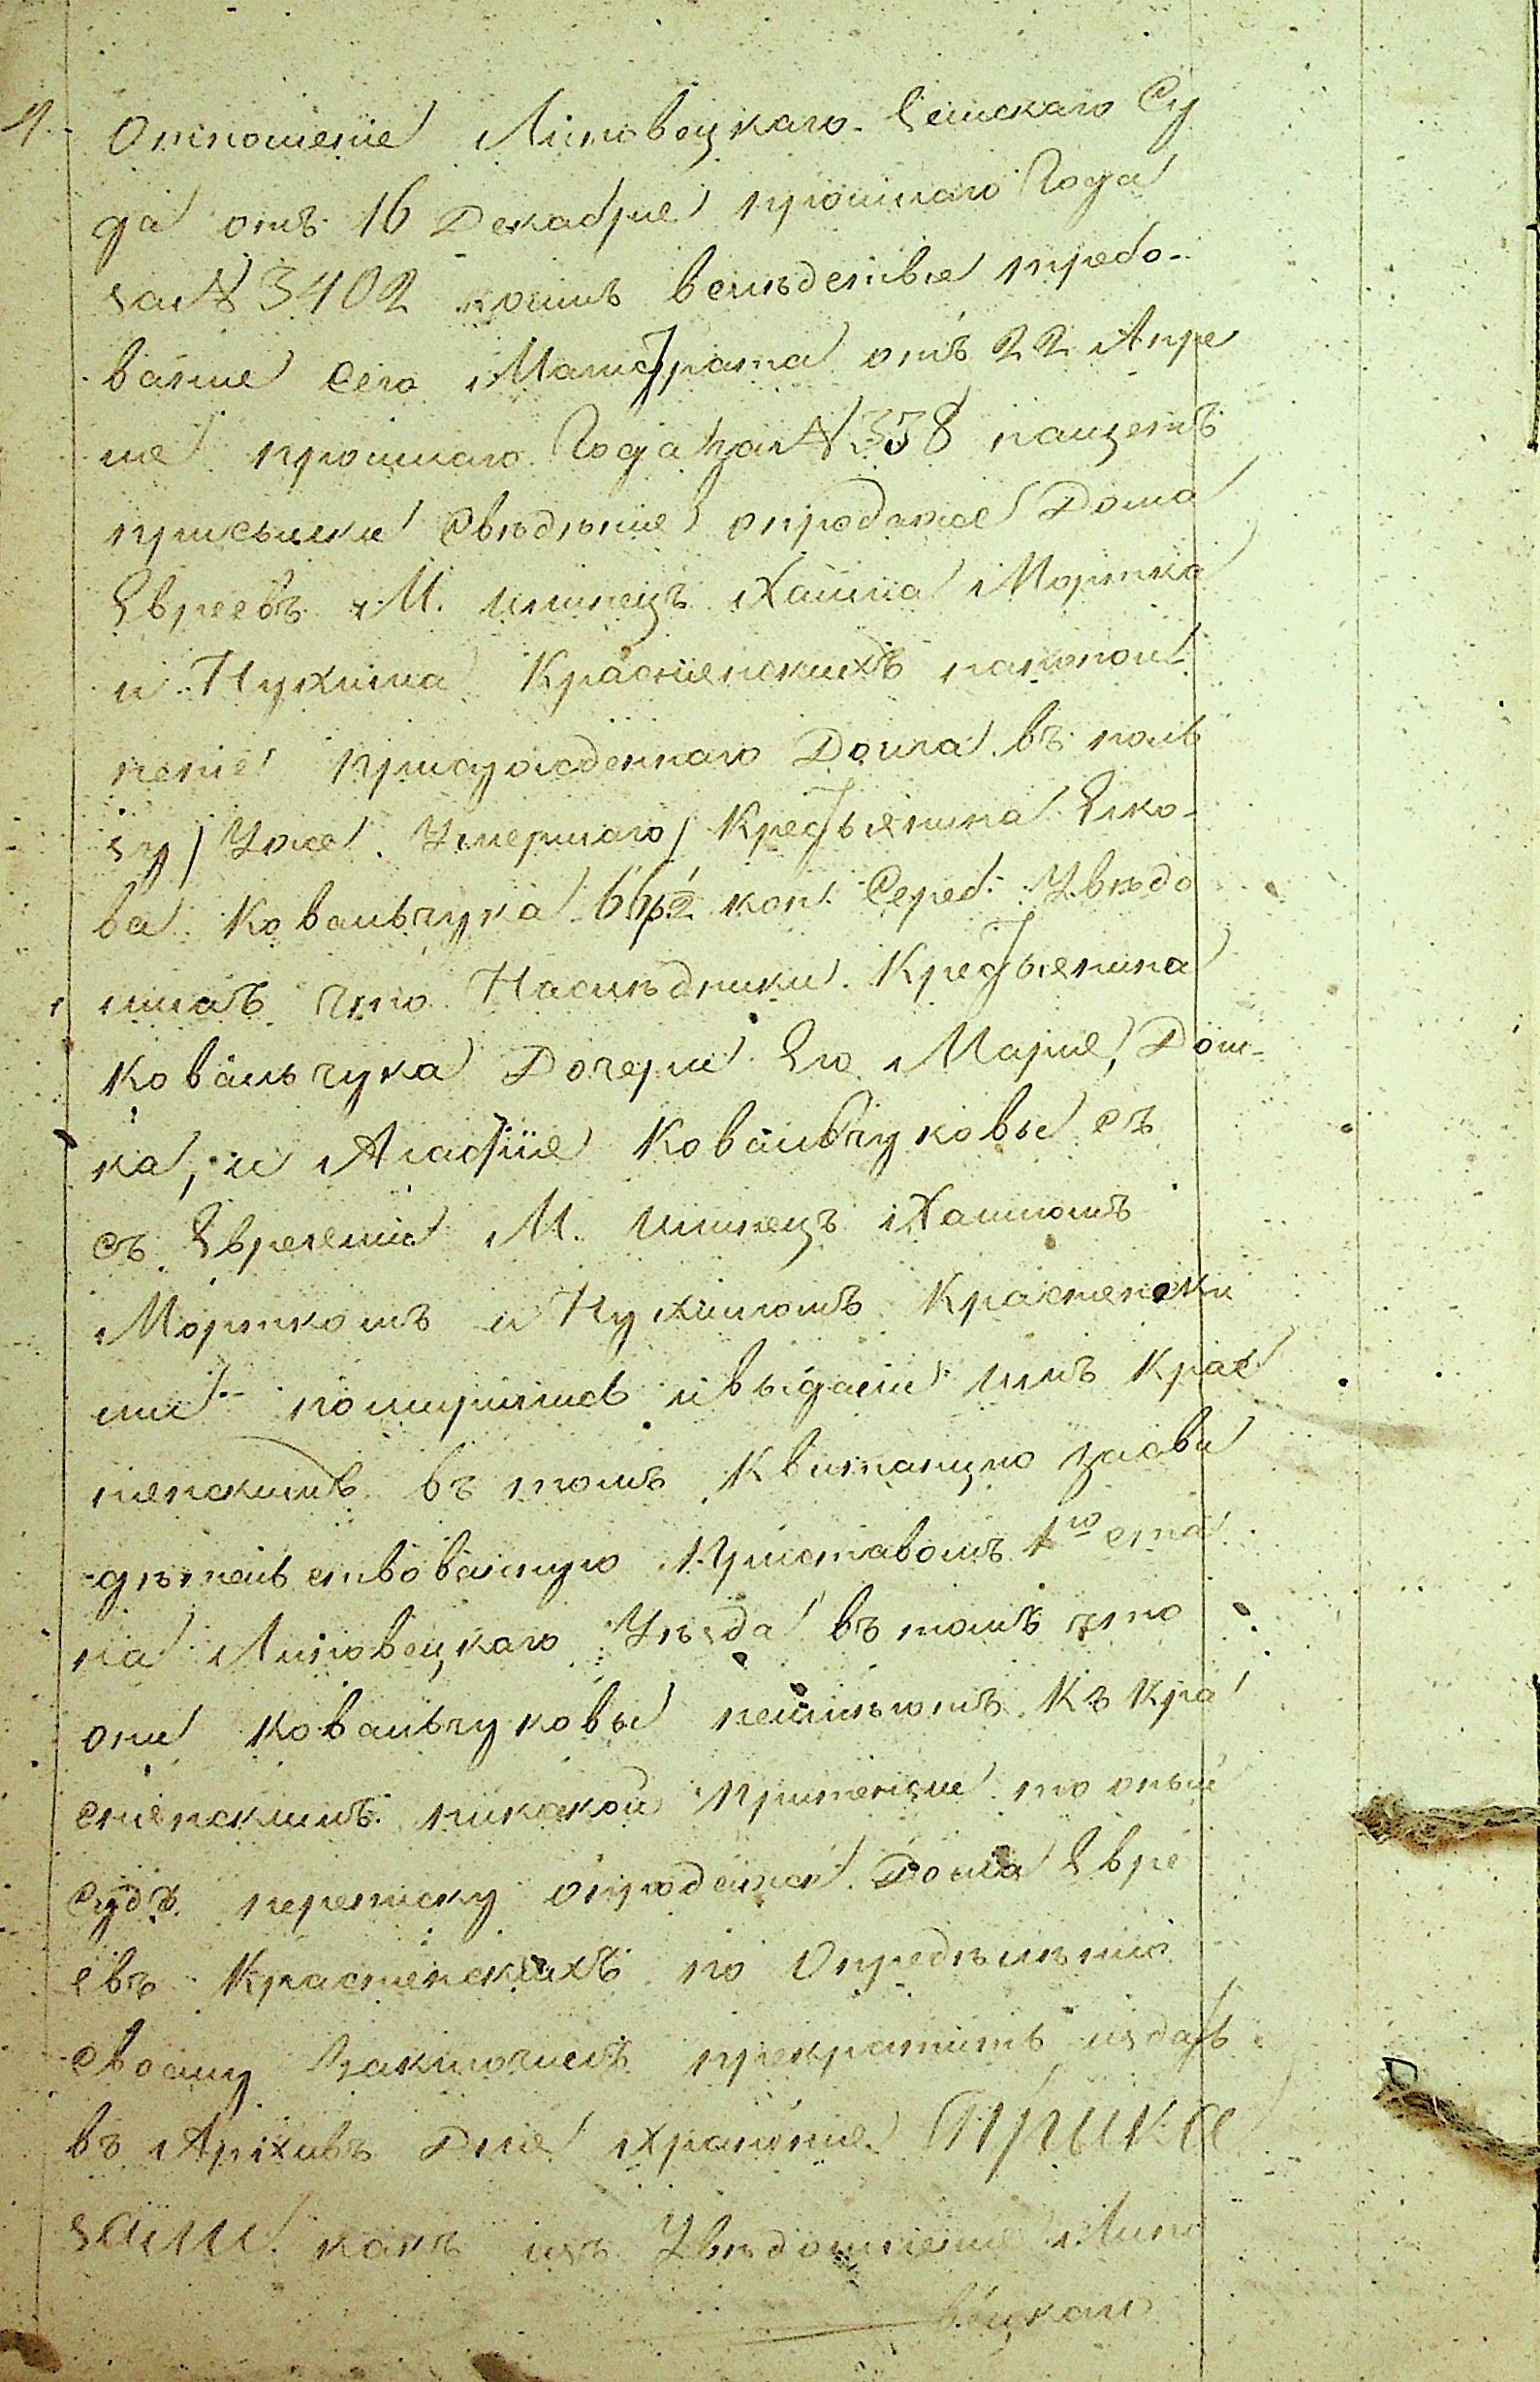 Отношение Липовецкаго Земскаго Су
да отъ 16 Декабря прошлаго Года
за № 3402 коимъ вслѣдствіе требо-
ванія Сего Магистрата отъ 22 Апре
ля прошлаго Года за № 338 нащетъ
присылки Свѣдѣнія опродажѣ Дома
Евреевъ М. Илинецъ Хаима Мортка
и Нухима Красненскихъ напопол
неніе присужденнаго Долга въ поль
зу / Уже Умершаго / Крестьянина Яко-
ва Ковальчука коп. Сереб. Увѣдо
милъ что Наслѣдники Крестьянина
Ковальчука Дочери Его Марія, Дом-
ка, и Агафія Ковальчуковы съ
съ Евреями М. Илинецъ Хаимомъ
Морткомъ и Нухимомъ Красненски
ми помирились ивыдали имъ Крас
ненскимъ въ томъ Квитанцію засви
дѣтельствованную Приставомъ 1го ста
на Липовецкаго Уѣзда въ томъ что
они Ковальчуковы неимѣютъ Къ Кра
сненскимъ никакой Притензіи то оный
Судъ переписку опродажи Дома Евре
евъ Красненскихъ по Определѣнію
своему Заключилъ прекратить издать
въ Архивъ Для храненія Прика
зали какъ изъ Увѣдомленія Липо
вецкаго